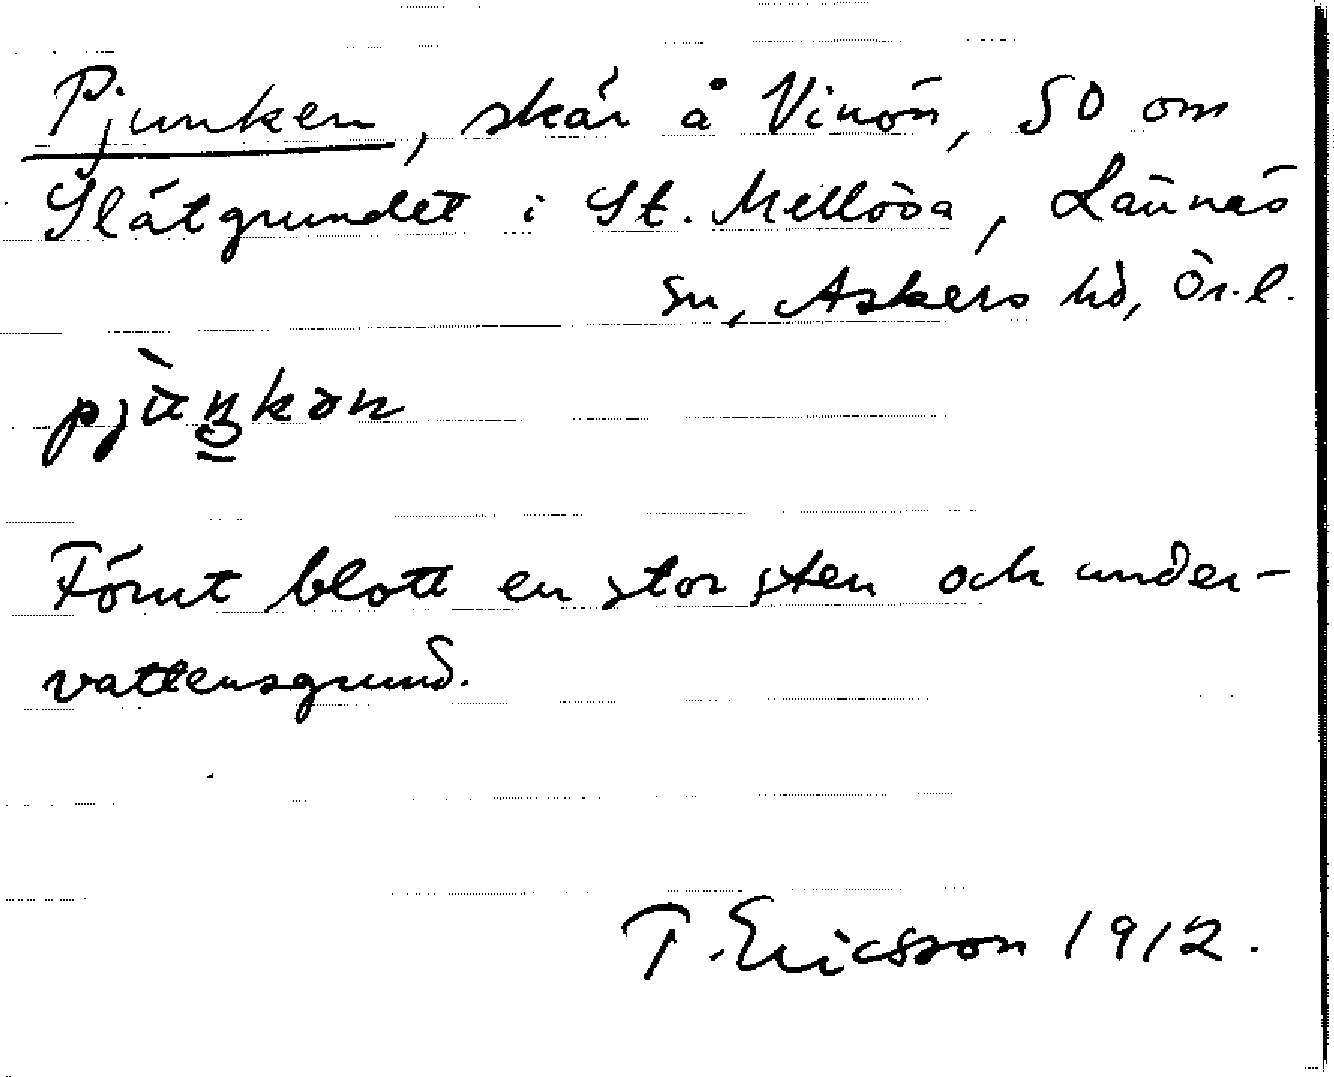 Pjunken, skär å Vinön, SO om
Slätgrundet i St. Mellösa, Lännäs
sn, Askers hd, Ör.l.
pjùŋkən
Förut blott en stor sten och under-
vattensgrund.
T. Ericsson 1912.